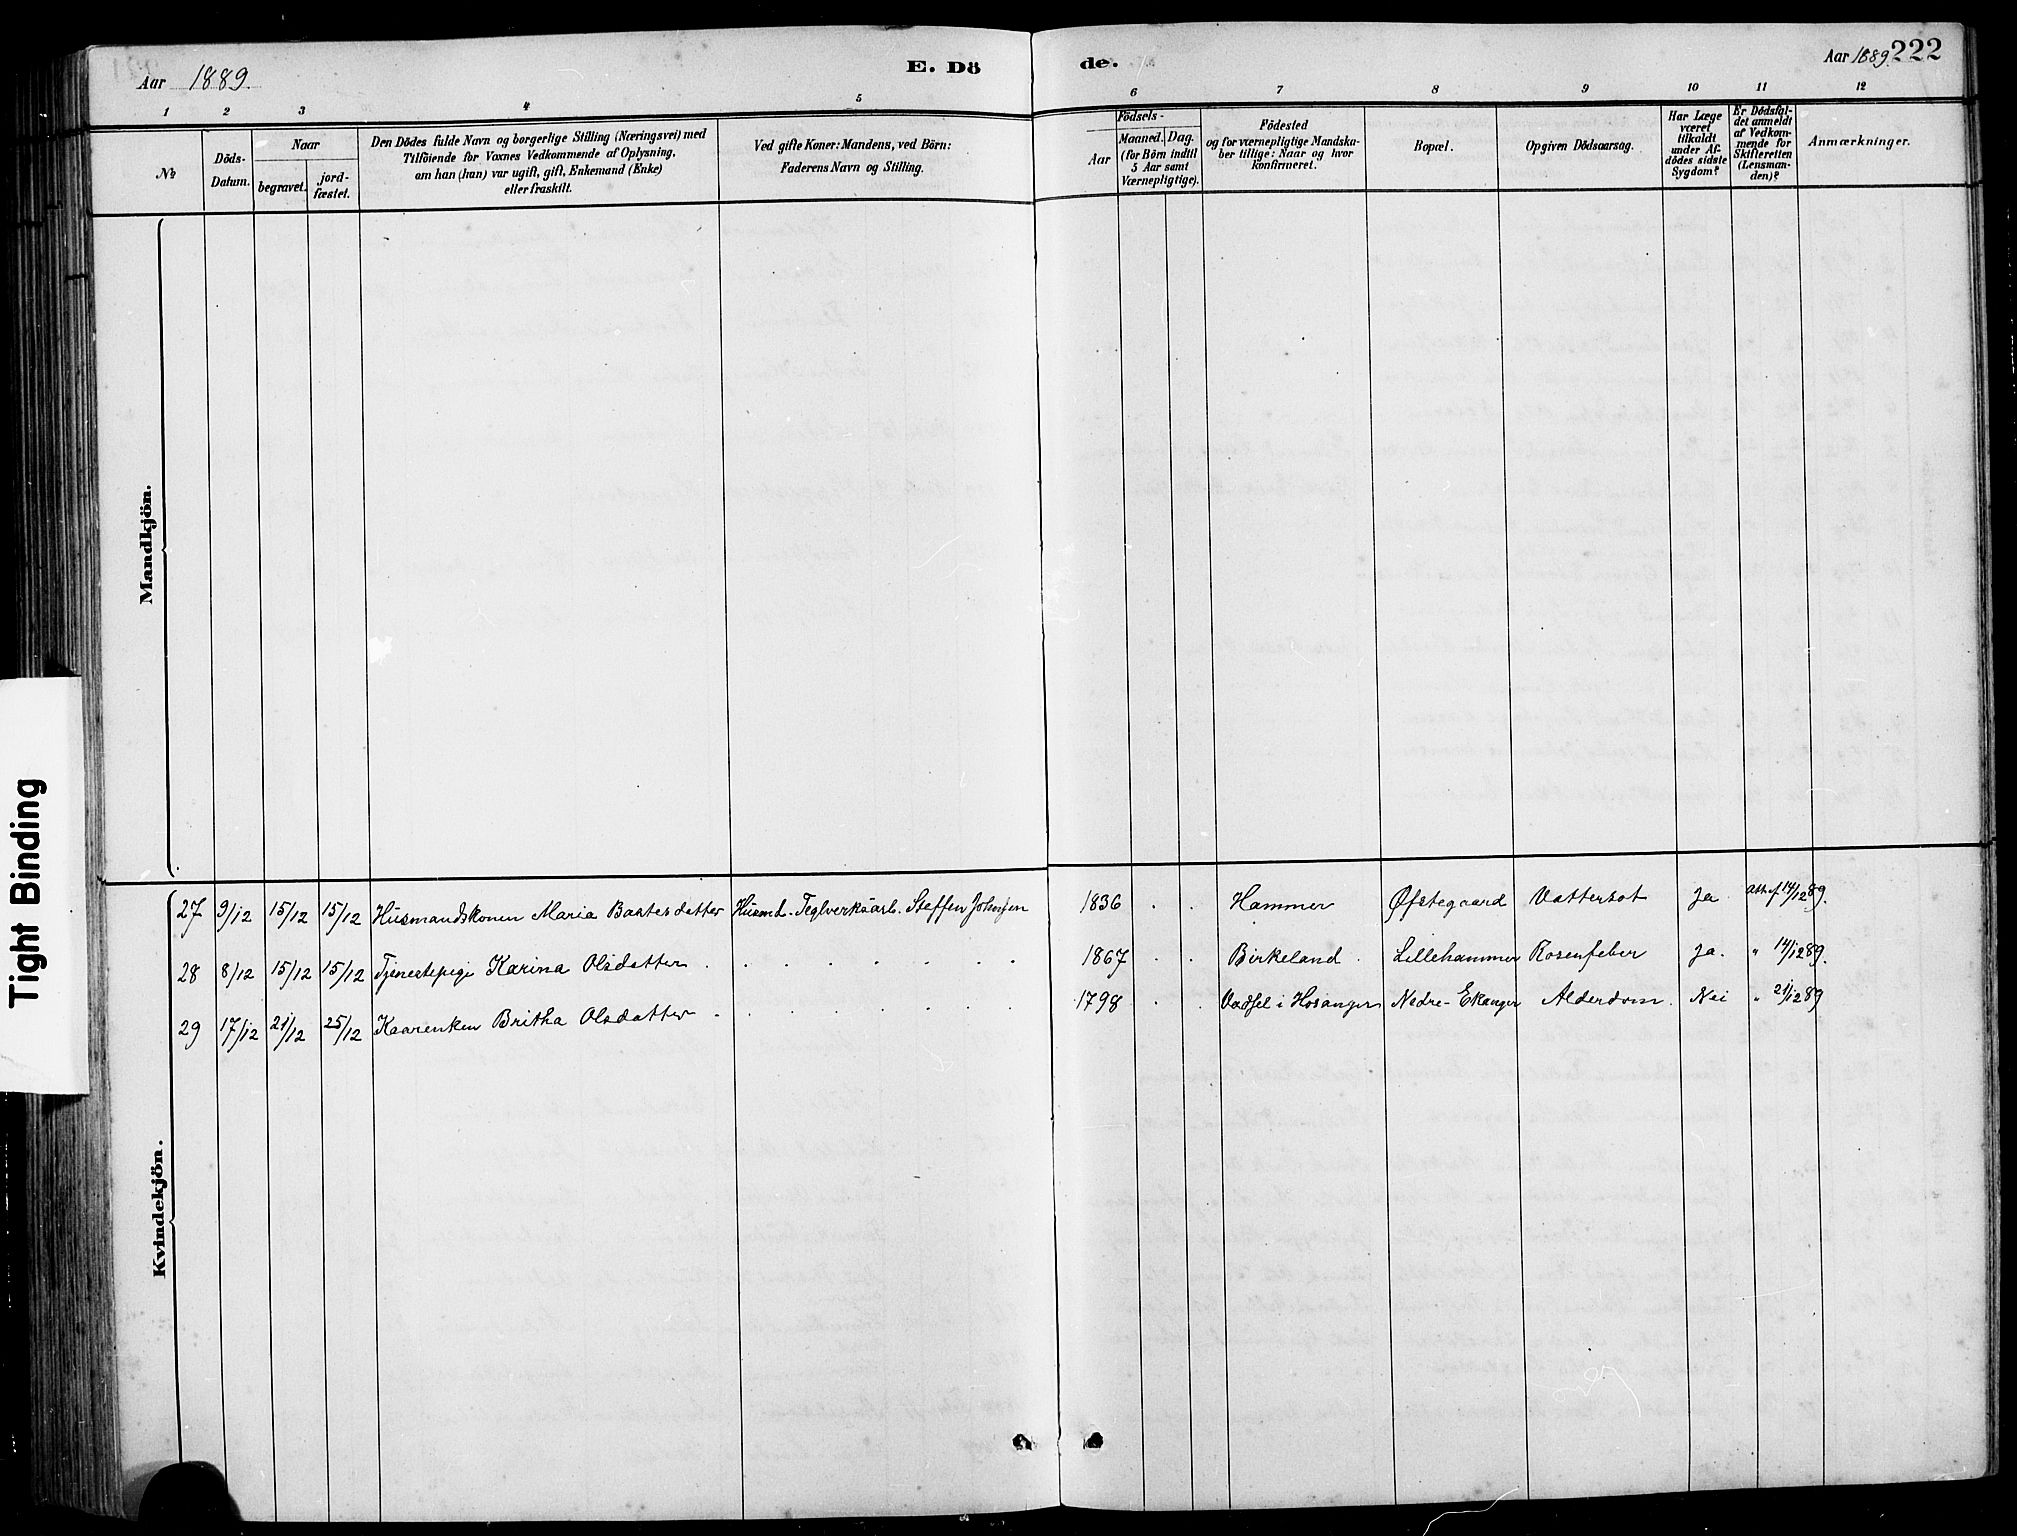 Aar 1889. E. Dö de. Aar 1889. 222
1 2 3 4 5 6 7 8 9 10 11 12
№
Döds-
Datum.
Naar
begravet.
jord-
fæstet.
Den Dödes fulde Navn og borgerlige Stilling (Næringsvei) med
Tilföiende for Voxnes Vedkommende af Oplysning,
om han (hun) var ugift, gift, Enkemand (Enke)
eller fraskilt.
Ved gifte Koner: Mandens, ved Börn:
Faderens Navn og Stilling.
Födsels-
Aar
Maaned. Dag.
(for Börn indtil
5 Aar samt
Værnepligtige).
Födested
og for værnepligtige Mandska-
ber tillige: Naar og hvor
konfirmeret.
Bopæl.
Opgiven Dödsaarsag.
Har Læge
været
tilkaldt
under Af-
dödes sidste
Sygdom?
Er Dödsfal-
det anmeldt
af Vedkom-
mende for
Skifteretten
(Lensman-
den)?
Anmærkninger.
Mandkjön.
Kvindekjön.
27 9/12 15/12 15/12 Husmandskonen Maria Baatesdatter Husmd. Teglverksarb. Steffen Johnsen 1836 . . Hammer Øfstegaard Vattersot Ja Att. f 14/12 89.
28 8/12 15/12 15/12 Tjenestepige Karina Olsdatter . . . . . . . . 1867 . . Birkeland . Lillehammer Rosenfeber Ja. " 14/12 89.
29 17/12 21/12 25/12 Kaarenken Britha Olsdatter . . . . . . . . 1798 . . Vadsel i Hosanger Nedre-Ekanger Alderdom. Nei " 21/12 89
Tight Binding